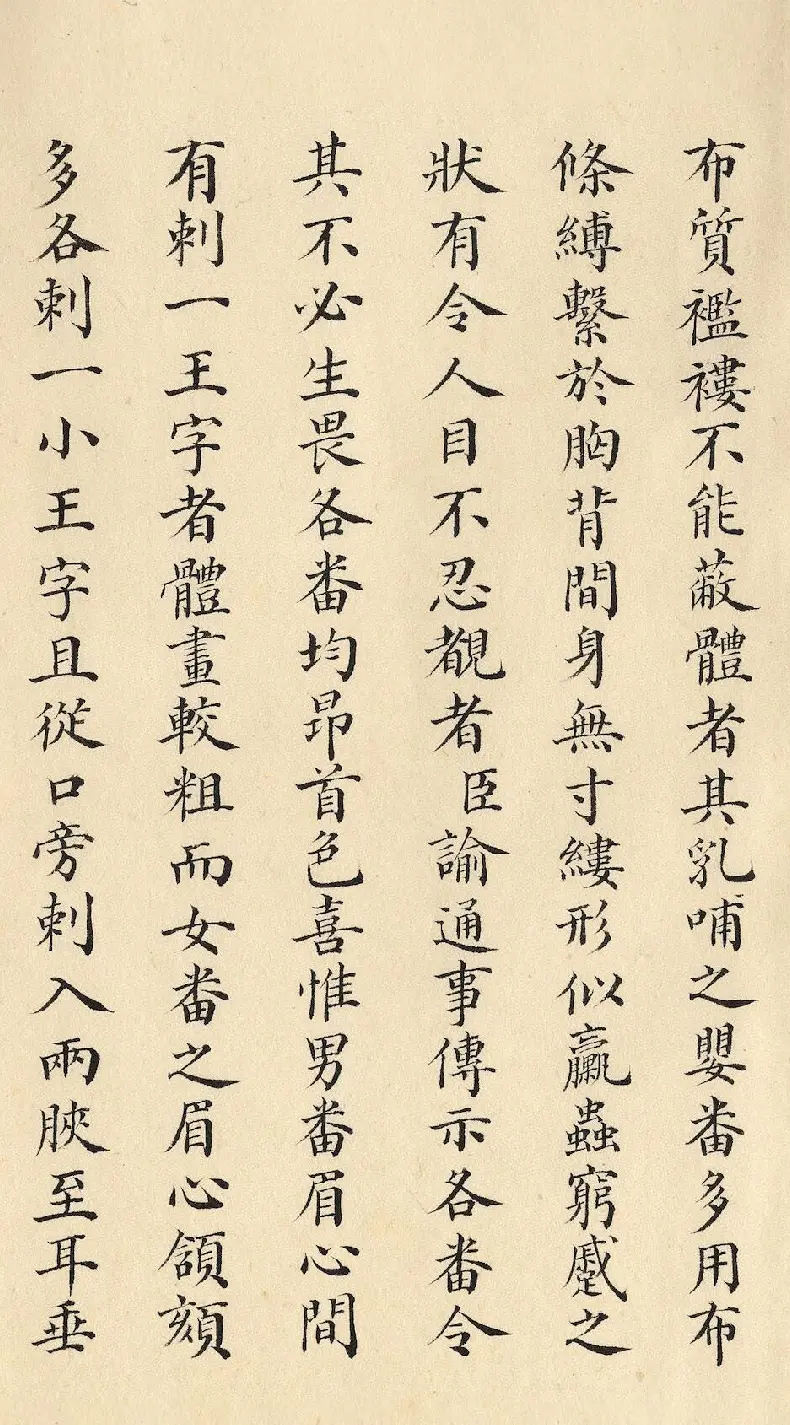 布質襤褸不能蔽體者其乳哺之嬰番多用布
條縛繫於胸背間身無寸縷形似臝蟲窮蹙之
狀有令人目不忍覩者臣諭通事傳示各番令
其不必生畏各番均昂首色喜惟男番眉心間
有刺一王字者體畫較粗而女番之眉心頷頦
多各刺一小王字且從口旁刺入兩脥至耳垂